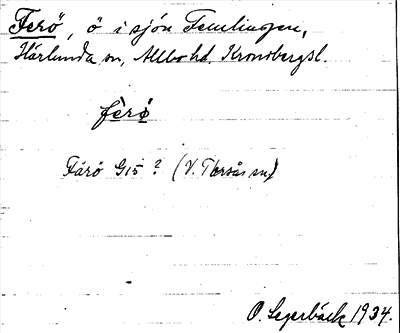 Ferö, ö i sjön Femlingen,
Härlunda sn, Allbo hd. Kronobergsl.
fèrö
Färö G15 ? (V. Torsås sn)
O. Segerbäck 1934.